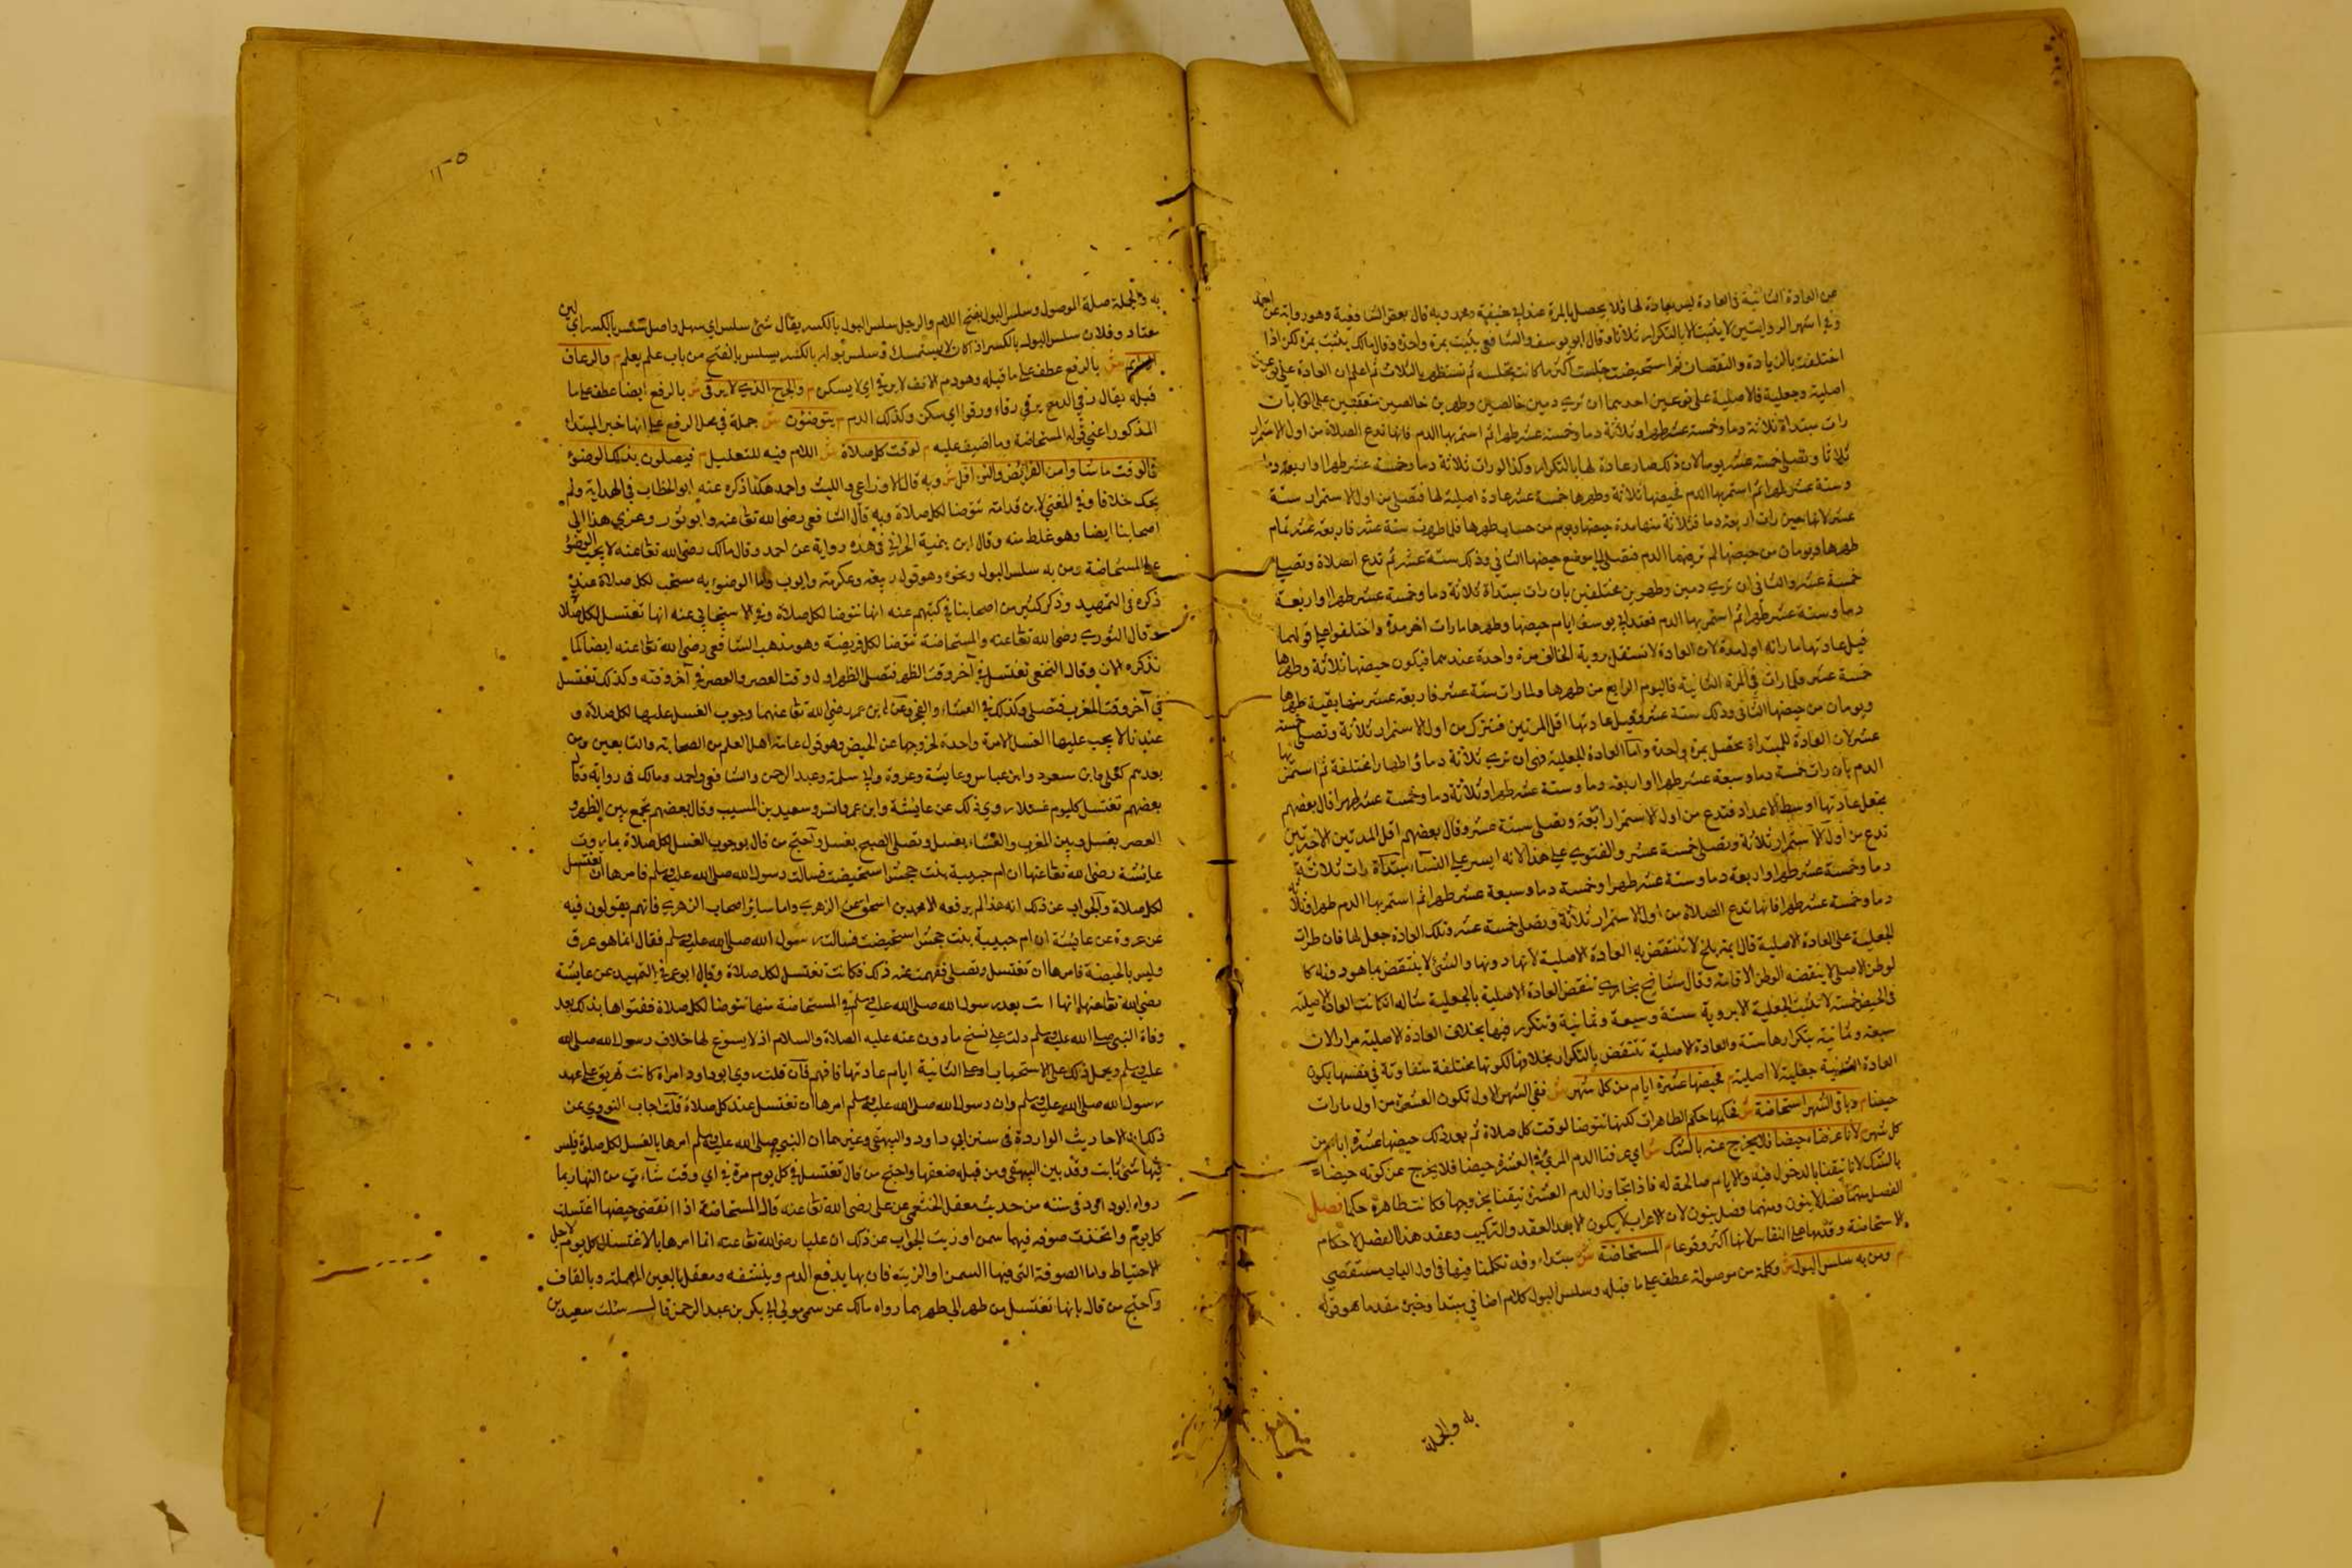 من العادة الثانية في العادة ليس بعادة لها فلا يحصل بالمرة عند ابي حنيفة ومحمد وبه قال بعض الشافعية وهو رواية عن احمد
وفي اشهر الروايتين لا يثبت الا بالتكرار ثلاثا وقال ابو يوسف والشافعي يثبت بمرة واحدة وقال مالك يثبت بمرة لكن اذا
اختلفت بالزيادة والنقصان ثم استحيضت جلست اكثر ما كانت تجلسه ثم تستظهر بالثلاث ثم اعلم ان العادة على نوعين
اصلية وجعلية فالاصلية على نوعين احدهما ان ترى دمين خالصين وطهرين خالصين متفقين على الولاء بان
رات مبتداة ثلاثة دما وخمسة عشر طهرا وثلاثة دما وخمسة عشر طهرا ثم استمر بها الدم فانها تدع الصلاة من اول الاستمرار
ثلاثا وتصلي خمسة عشر يوما لان ذلك صار عادة لها بالتكرار وكذا لو رات ثلاثة دما وخمسة عشر طهرا واربعة دما
وستة عشر طهرا ثم استمر بها الدم فحيضها ثلاثة وطهرها خمسة عشر عادة اصلية لها فتصلي من اول الاستمرار ستة
عشر لانها حين رات اربعة دما فثلاثة منها مدة حيضها ويوم من حساب طهرها فلما طهرت ستة عشر فاربعة عشر تمام
طهرها ويومان من حيضها لم تر فيهما الدم فتصلي الى موضع حيضها الثاني وذلك ستة عشر ثم تدع الصلاة وتصلي
خمسة عشر والثاني ان ترى دمين وطهرين مختلفين بان رات مبتداة ثلاثة دما وخمسة عشر طهرا واربعة
دما وستة عشر طهرا ثم استمر بها الدم فعند ابي يوسف ايام حيضها وطهرها ما رات اخر مرة واختلفوا على قولهما
قيل عادتها ما راته اول مرة لان العادة لا تنتقل برؤية المخالف مرة واحدة عندهما فيكون حيضها ثلاثة وطهرها
خمسة عشر فلما رات في المرة الثانية فاليوم الرابع من طهرها ولما رات ستة عشر فاربعة عشر منها بقية طهرها
ويومان من حيضها الثاني وذلك ستة عشر وقيل عادتها اقل المرتين فتترك من اول الاستمرار ثلاثة وتصلي خمسة
عشر لان العادة للمبتداة تحصل بمرة واحدة واما العادة الجعلية فهي ان ترى ثلاثة دما واطهارا مختلفة ثم استمر بها
الدم بان رات خمسة دما وسبعة عشر طهرا واربعة دما وستة عشر طهرا وثلاثة دما وخمسة عشر طهرا قال بعضهم
تجعل عادتها اوسط الاعداد فتدع من اول الاستمرار اربعة وتصلي ستة عشر وقال بعضهم اقل المدتين الاخرتين
تدع من اول الاستمرار ثلاثة وتصلي خمسة عشر والفتوى على هذا لانه ايسر على النساء مبتداة رات ثلاثة
دما وخمسة عشر طهرا واربعة دما وستة عشر طهرا وخمسة دما وسبعة عشر طهرا ثم استمر بها الدم
دما وخمسة عشر طهرا فانها تدع الصلاة من اول الاستمرار ثلاثة وتصلي خمسة عشر وتلك العادة جعل لها فان طرات
الجعلية على العادة الاصلية قال ايمة بلخ لا تنتقض به العادة الاصلية لانها دونها والشئ لا ينتقض بما هو دونه كا
لوطن الاصلي لا ينقضه الوطن الاقامة وقال مشايخ بخارى تنتقض العادة الاصلية بالجعلية مثاله ان كانت العادة الاصلية
في الحيض خمسة لا تثبت الجعلية الا برؤية ستة وسبعة وثمانية وتتكرر فيها بخلاف العادة الاصلية مرارا لان
سبعة وثمانية يتكرارها ستة والعادة الاصلية تنتقض بالتكرار بخلافها لكونها مختلفة متفاوتة في نفسها يكون
العادة الثانية جعلية لا اصلية م فحيضها عشرة ايام من كل شهر ش ففي الشهر الاول تكون العشرة من اول ما رات
حيضا م وباقي الشهر استحاضة ش فحكمها حكم الطاهرات لكنها تتوضا لوقت كل صلاة ثم بعد ذلك حيضها عشرة ايام من
كل شهر م لانا عرفناه حيضا فلا يخرج عنه بالشك ش اي عرفنا الدم المرئي في العشرة حيضا فلا يخرج عن كونه حيضا
بالشك لانا تيقنا بالدخول فيه والايام صالحة له فاذا تجاوز الدم العشرة تيقنا بخروجها وكانت طاهرة حكما فصل
الفصل مهما فصل لا ينون ومهما وصل ينون لان الاعراب لا يكون الا بعد العقد والتركيب وعقد هذا الفصل لاحكام
الاستحاضة وقدمها على النفاس لانها اكثر وقوعا م المستحاضة ش مبتداء وقد تكلمنا فيها في اول الباب مستقصي
م ومن به سلس البول ش وكلمة من موصولة عطف على ما قبله وسلس البول كلام اضافي مبتدا وخبره مقدما هو قوله
به والجملة
١١٥
به والجملة صلة الموصول وسلس البول بفتح اللام والرجل سلس البول بالكسر يقال شئ سلس اي سهل واصل سلس بالكسر اي لين
معتاد وفلان سلس البول بالكسر اذا كان لا يستمسك وسلس بوله بالكسر يسلس بالفتح من باب علم يعلم م والرعاف
الدائم ش بالرفع عطف على ما قبله وهو دم الانف لا يرقى اي لا يسكن م والجرح الذي لا يرقى ش بالرفع ايضا عطف على ما
قبله يقال رقي الدمع يرقى رقاء ورقوا اي سكن وكذلك الدم م يتوضئون ش جملة في محل الرفع على انها خبر المبتداء
المذكور اعني قوله المستحاضة وما اضيف عليه م لوقت كل صلاة ش اللام فيه للتعليل م فيصلون بذلك الوضوء
في الوقت ما شاءوا من الفرائض والنوافل ش وبه قال الاوزاعي والليث واحمد هكذا ذكره عنه ابو الخطاب في الهداية ولم
يحك خلافا وفي المغني لابن قدامة تتوضا لكل صلاة وبه قال الشافعي رضي الله تعا عنه وابو ثور وعزي هذا الى
اصحابنا ايضا وهو غلط منه وقال ابن تيمية الحراني في هذه رواية عن احمد وقال مالك رضي الله تعا عنه لا يجب الوضوء
على المستحاضة ومن به سلس البول ونحوه وهو قول ربيعة وعكرمة وايوب وانما الوضوء به مستحب لكل صلاة عنده
ذكره في التمهيد وذكر كثير من اصحابنا في كتبهم عنه انها تتوضا لكل صلاة وفي الاسبيجابي عنه انها تغتسل لكل صلاة
وقال الثوري رضي الله تعا عنه والمستحاضة تتوضا لكل فريضة وهو مذهب الشافعي رضي الله تعا عنه ايضا لما
نذكره الان وقال النخعي تغتسل في آخر وقت الظهر فتصلي الظهر اول وقت العصر والعصر في آخر وقته وكذلك تغتسل
في آخر وقت المغرب فتصلي وكذلك في العشاء والفجر وعن ابن عمر رضي الله تعا عنهما وجوب الغسل عليها لكل صلاة و
عندنا لا يجب عليها الغسل الا مرة واحدة لخروجها عن الحيض وهو قول عامة اهل العلم من الصحابة والتابعين ومن
بعدهم كعلي وابن مسعود وابن عباس وعايشة وعروة وابي سلمة وعبد الرحمن والشافعي واحمد ومالك في رواية وقال
بعضهم تغتسل كل يوم غسلا روي ذلك عن عائشة وابن عمر وانس وسعيد بن المسيب وقال بعضهم تجمع بين الظهر و
العصر بغسل وبين المغرب والعشاء بغسل وتصلي الصبح بغسل واحتج من قال بوجوب الغسل لكل صلاة بما روت
عائشة رضي الله تعا عنها ان ام حبيبة بنت جحش استحيضت فسالت رسول الله صلى الله عليه وسلم فامرها ان تغتسل
لكل صلاة والجواب عن ذلك انه هذا لم يرفعه الا محمد بن اسحق عن الزهري واما سائر اصحاب الزهري فانهم يقولون فيه
عن عروة عن عائشة ان ام حبيبة بنت جحش استحيضت فسالت رسول الله صلى الله عليه وسلم فقال انما هو عرق
وليس بالحيضة فامرها ان تغتسل وتصلي ففهمت عنه ذلك فكانت تغتسل لكل صلاة وقال ابو عمر في التمهيد عن عايشة
رضي الله تعا عنها انها افتت بعد رسول الله صلى الله عليه وسلم في المستحاضة منها تتوضا لكل صلاة ففتواها بذلك بعد
وفاة النبي صلى الله عليه وسلم دلت على نسخ ما روت عنه عليه الصلاة والسلام اذ لا يسوغ لها خلاف رسول الله صلى الله
عليه وسلم ويحمل ذلك على الاستحباب او على الثانية ايام عادتها فافهم فان قلت روي ابو داود امراة كانت تهريق على عهد
رسول الله صلى الله عليه وسلم وان رسول الله صلى الله عليه وسلم امرها ان تغتسل عند كل صلاة قلت اجاب النووي عن
ذلك ان الاحاديث الواردة في سنن ابي داود والبيهقي وغيرهما ان النبي صلى الله عليه وسلم امرها بالغسل لكل صلوة فليس
فيها شئ ثابت وقد بين البيهقي ومن قبله ضعفها واحتج من قال تغتسل في كل يوم مرة في اي وقت شاءت من النهار بما
رواه ابو داود في سننه من حديث معقل الخثعمي عن علي رضي الله تعا عنه قال المستحاضة اذا انقضى حيضها اغتسلت
كل يوم واتخذت صوفة فيهما سمن او زيت الجواب عن ذلك ان عليا رضي الله تعا عنه انما امرها بالاغتسال كل يوم لاجل
الاحتياط واما الصوفة التي فيها السمن او الزيت فان بها يدفع الدم وينشفه ومعقل بالعين المهملة وبالقاف
واحتج من قال بانها تغتسل من طهر الى طهر بما رواه مالك عن سمي مولى ابي بكر بن عبد الرحمن قال سئلت سعيد بن